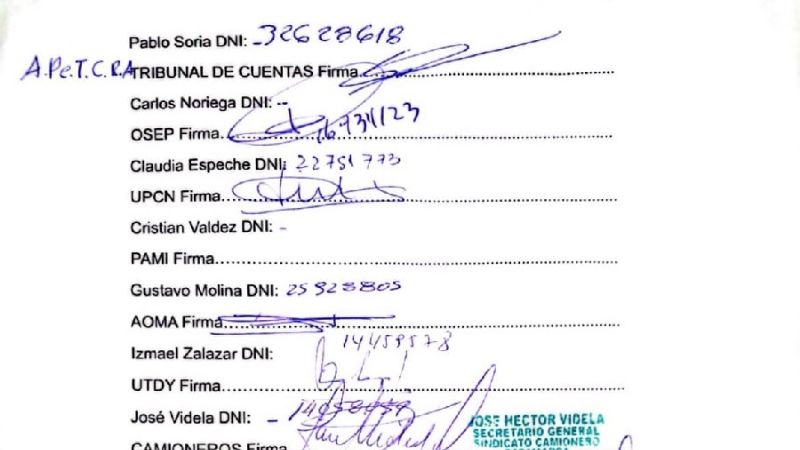 Pablo Soria DNI: - 32628618
A.Pe.T.C.R.A TRIBUNAL DE CUENTAS Firma
Carlos Noriega DNI: --
OSEP Firma 16934123
Claudia Espeche DNI: 22751773
UPCN Firma
Cristian Valdez DNI: -
PAMI Firma
Gustavo Molina DNI: 25928805
AOMA Firma
Izmael Zalazar DNI: 14459578
UTDY Firma
José Videla DNI: -
CAMIONEROS Firma
JOSE HECTOR VIDELA
SECRETARIO GENERAL
SINDICATO CAMIONERO